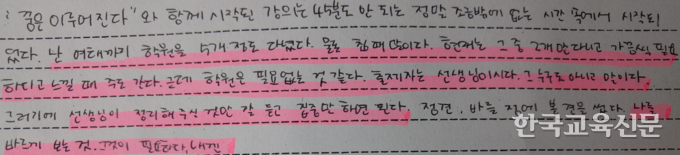 : 꿈은 이루어진다" 와 함께 시작된 강의는 45분도 안 되는 정말 조금밖에 없는 시간 속에서 시작되
었다. 난 여태까지 학원을 5개 정도 다녔다. 물론 합 때 말이다. 현재는 그 중 2개만 다니고 가끔씩 필요
하다고 느낄 때 주로 간다. 근데 학원은 필요없는 것 같다. 출제자는 선생님이시다. 그 누구도 아니고 말이다.
그러기에 선생님이 정리해 주신 것만 잘 듣고 집중만 하면 된다. 정견, 바를 정에 볼 견을 쓴다. 나를
바르게 보는 것. 그것이 필요하다, 내겐
한국교육신문